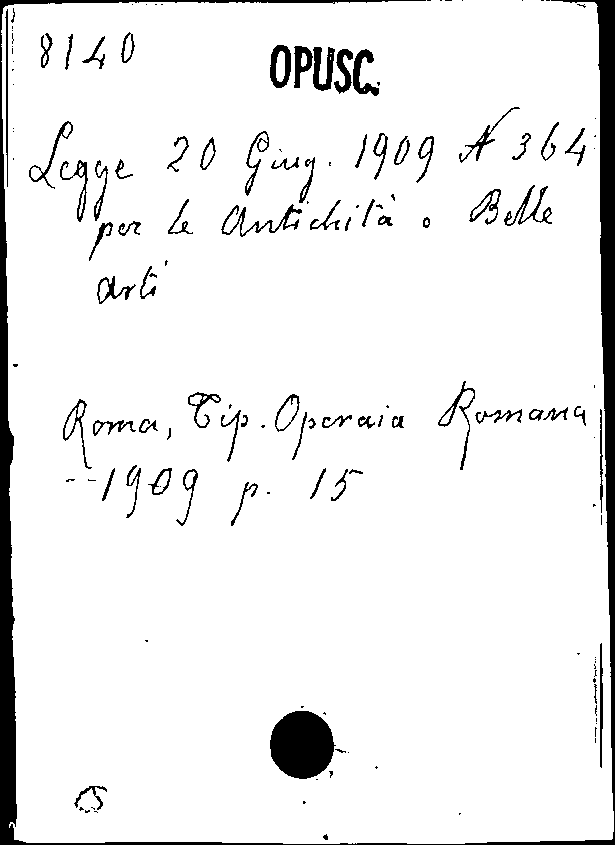 8140
OPUSC.
Legge 20 Giug. 1909 N 364
per le Antichità e Belle
Arti
Roma, Tip. Operaia Romana
--1909 p. 15